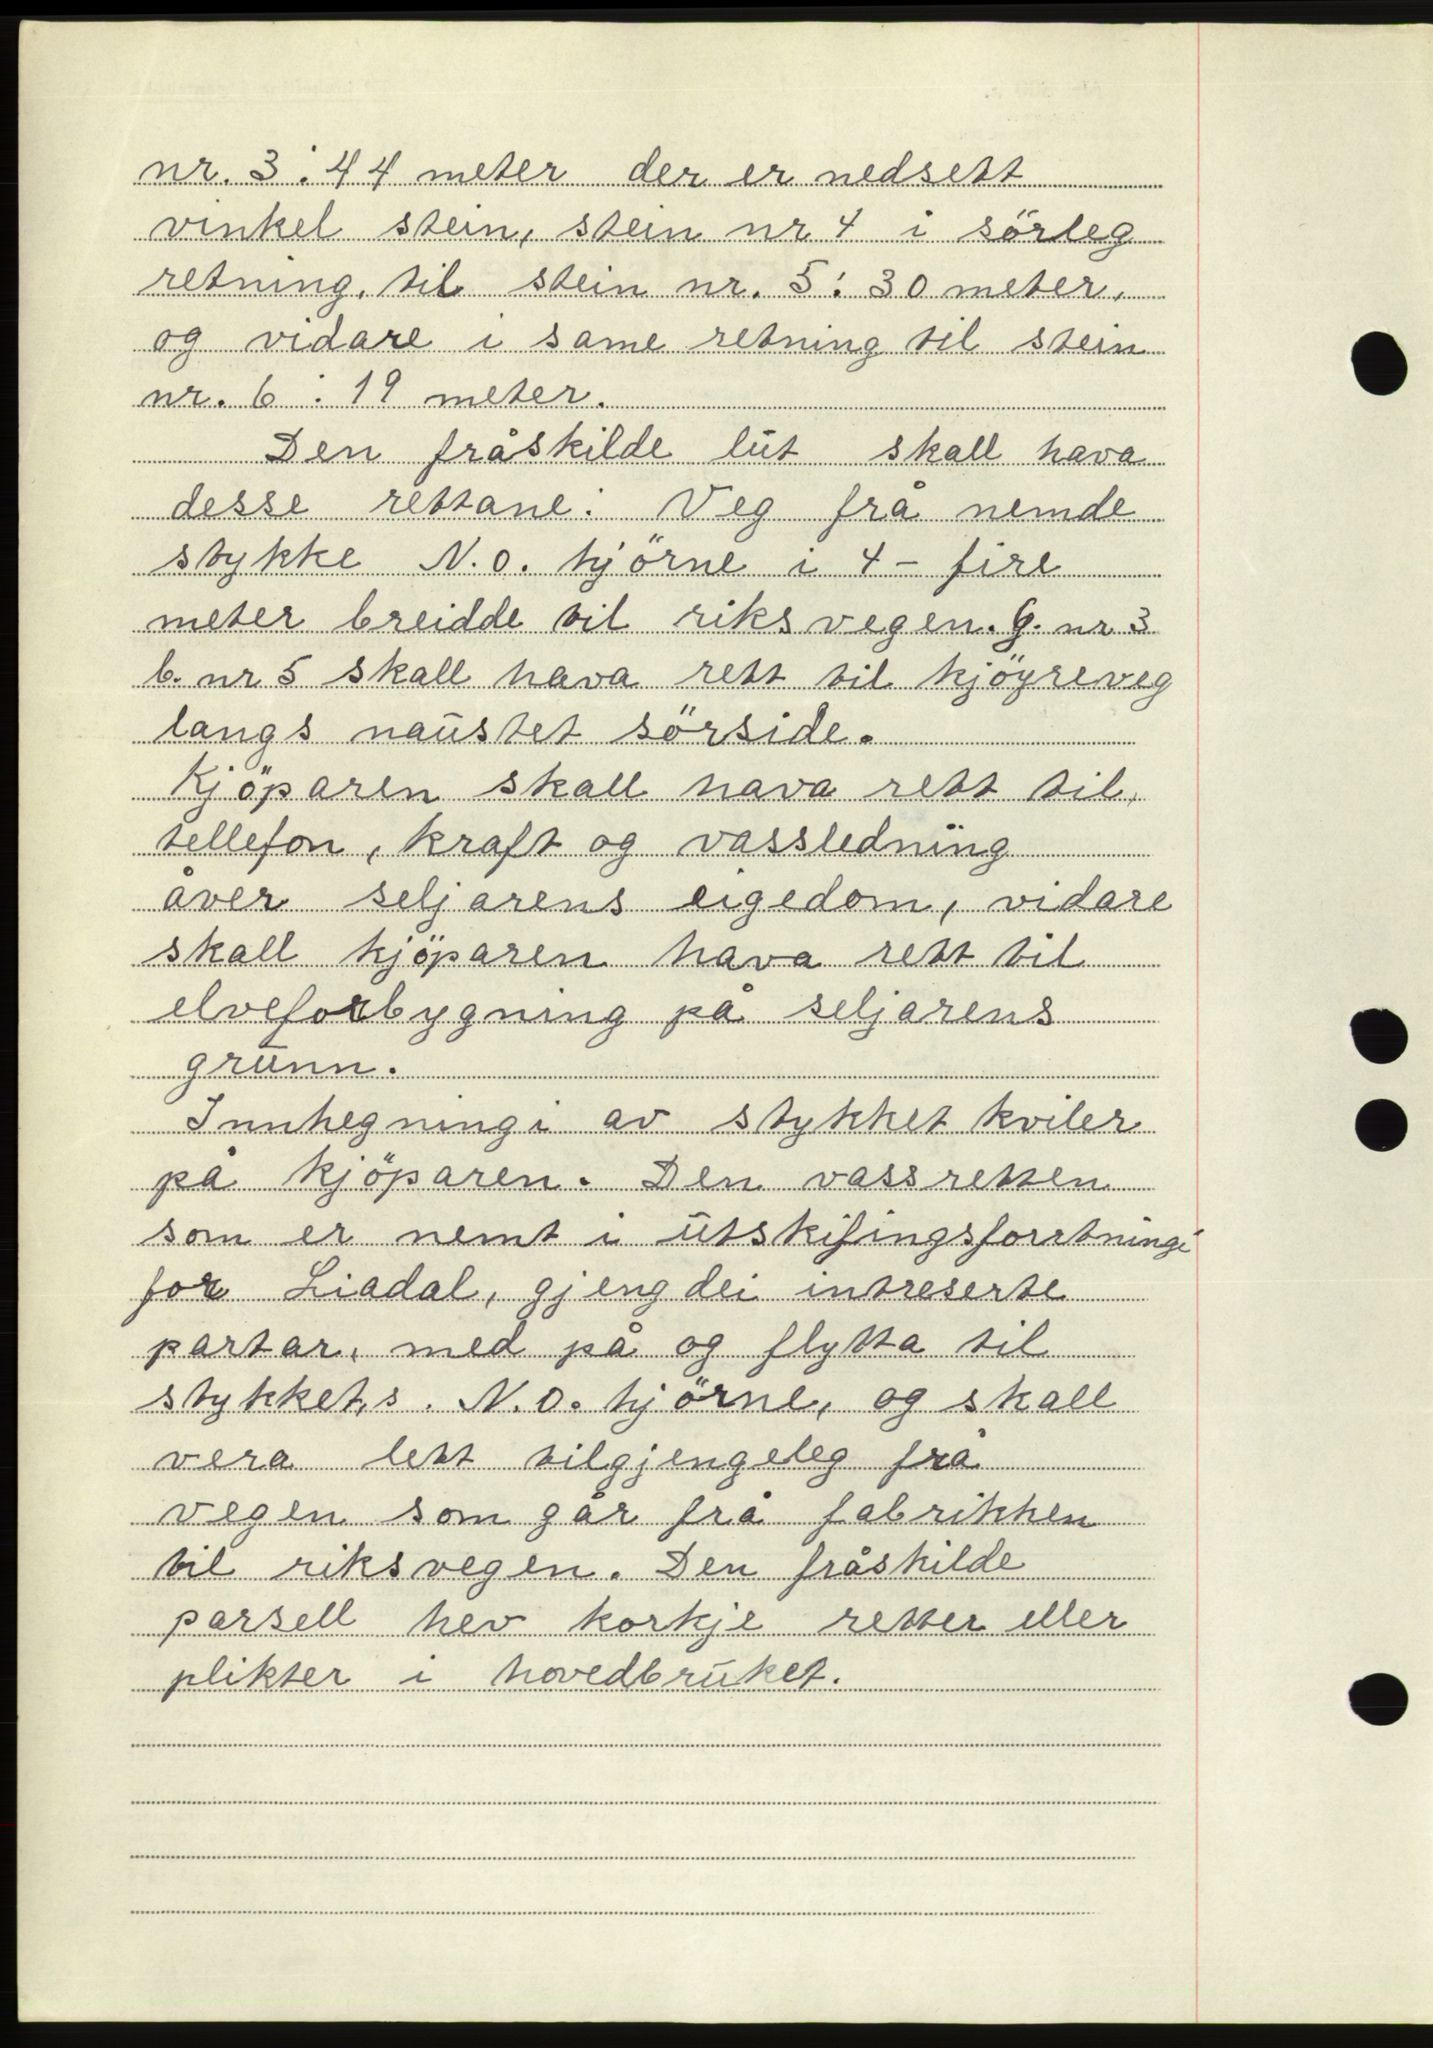 nr. 3: 44 meter der er nedsett
vinkel stein, stein nr 4 i sörleg
retning, til stein nr. 5: 30 meter,
og vidare i same retning til stein
nr. 6: 19 meter.
Den fråskilde lut skall hava
desse rettane: Veg frå nemde
stykke N.o. hjörne i 4 - fire
meter breidde til riksvegen. G. nr 3
b. nr 5 skall hava rett til kjöyreveg
langs naustet sörside.
Kjöparen skall hava rett til,
tellefon, kraft og vassledning
åver seljarens eigedom, vidare
skall kjöparen hava rett til
elveforbygning på seljarens
grunn.
Innhegningi av stykket kviler
på kjöparen. Den vassretten
som er nemt i utskifingsforrtningi
for Liadal, gjeng dei intreserte
partar, med på og flytta til
stykket,s. N.o. hjörne, og skall
vera lett tilgjengeleg frå
vegen som går frå fabrikken
til riksvegen. Den fråskilde
parsell hev korkje retter eller
plikter i hovedbruket.